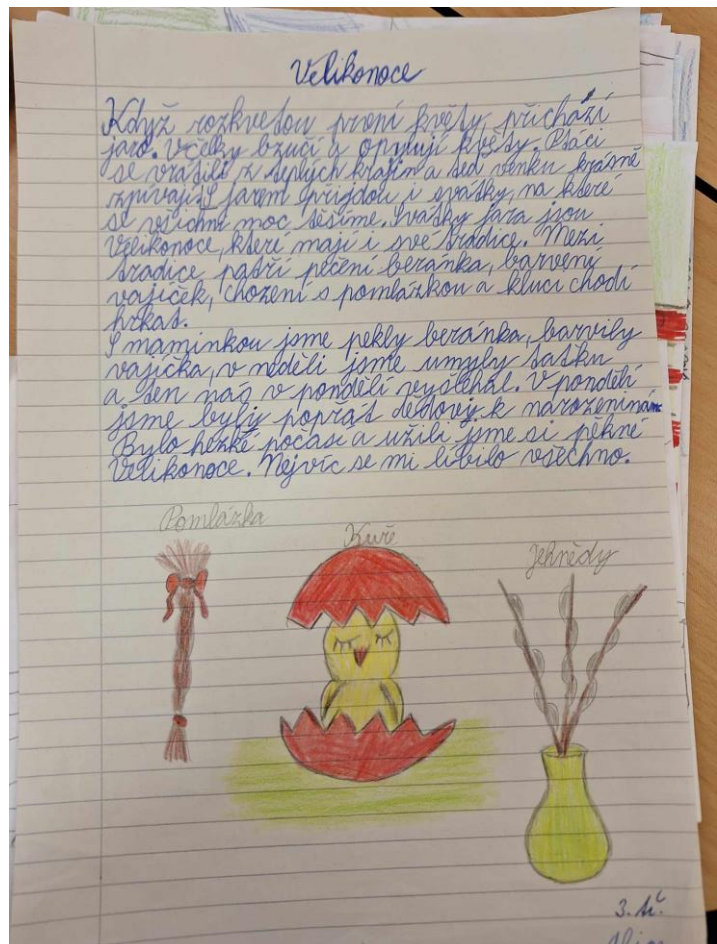 Velikonoce
Když rozkvetou první květy, přichází
jaro. Včelky bzučí a opylují květy. Ptáci
se vrátili z teplých krajin a teď venku krásně
zpívají. S jarem přijdou i svátky, na které
se všichni moc těšíme. Svátky jara jsou
Velikonoce, které mají i své tradice. Mezi
tradice patří pečení beránka, barvení
vajíček, chození s pomlázkou a kluci chodí
hrkat.
S maminkou jsme pekly beránka, barvily
vajíčka, v neděli jsme umyly taťku
a ten nás v pondělí vyšlehal. V pondělí
jsme byly poprat dědovy k narozeninám
Bylo hezké počasí a užili jsme si pěkné
Velikonoce. Nejvíc se mi líbilo všechno.
Pomlázka
Kuře
Jehnědy
3. tř.